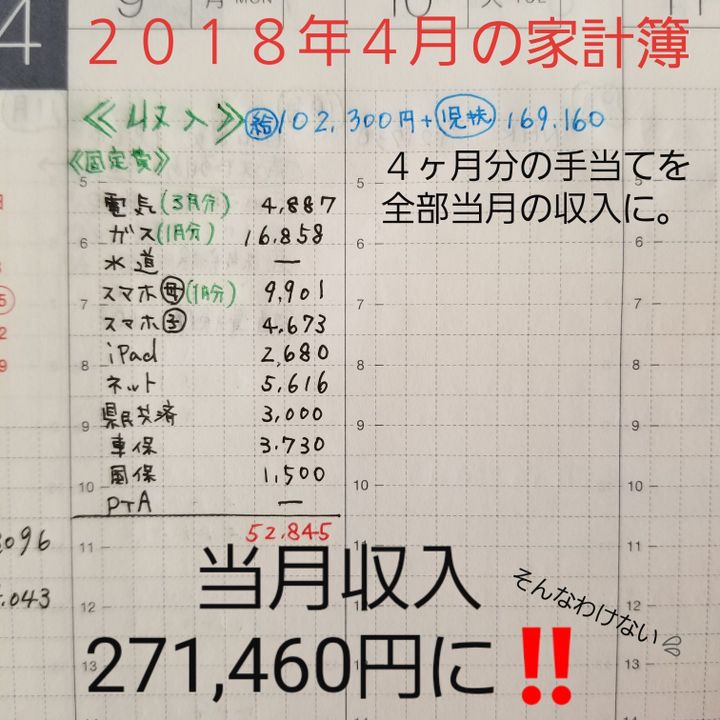 4
9
月 MON
10
火 TUE
2018年4月の家計簿
≪収入≫ 給 102,300円+児扶 169,160
《固定費》
4ヶ月分の手当てを
全部当月の収入に。
電気(3月分) 4,887
ガス(1月分) 16,858
水道 ー
スマホ母(1月分) 9,901
スマホ子 4,673
iPad 2,680
ネット 5,616
県民共済 3,000
車保 3,730
国保 1,500
PTA ー
52,845
5
6
7
8
9
10
11
12
13
096
.043
当月収入
271,460円に‼
そんなわけない